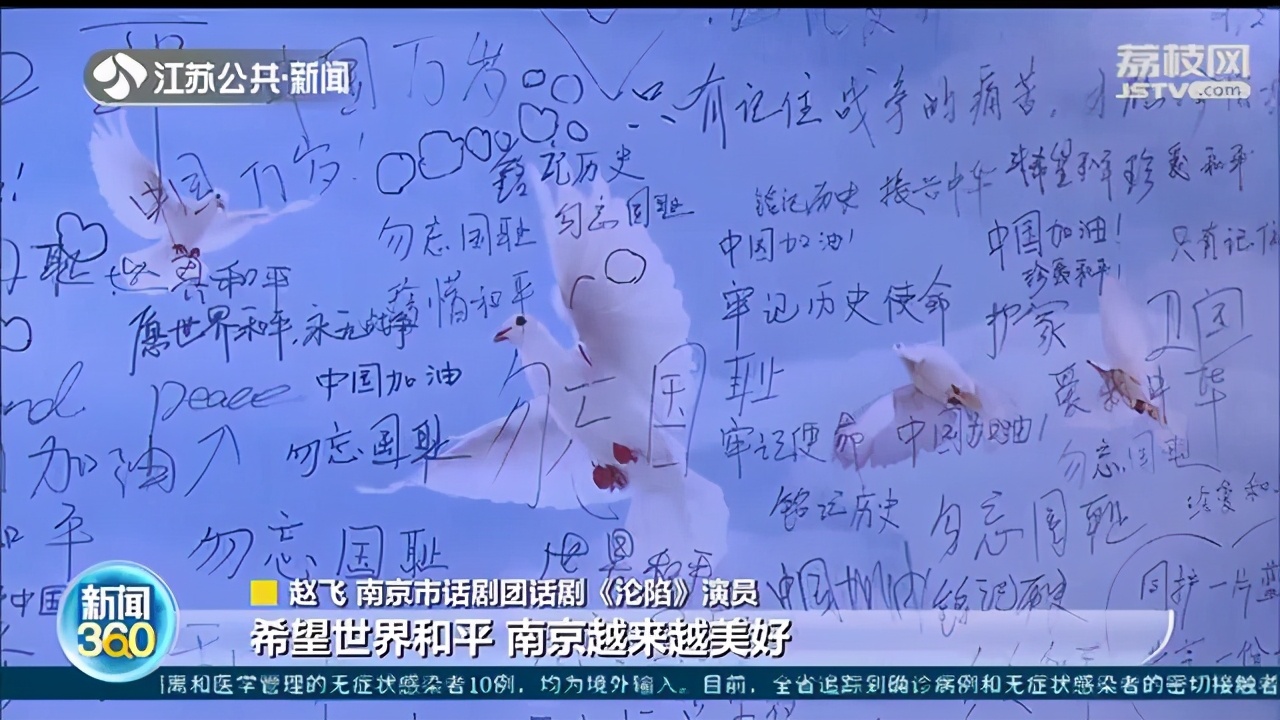 江苏公共·新闻
荔枝网
JSTV.com
中国万岁
只有记住战争的痛苦,才
中国万岁!
铭记历史
勿忘国耻
勿忘国耻
铭记历史 振兴中华
希望 珍爱和平
中国加油!
中国加油!
珍爱和平!
只有记住
和平
珍惜和平
牢记历史使命
护家 卫国
愿世界和平,永无战争
peace
中国加油
勿忘国耻
爱我中华
加油
勿忘国耻
牢记使命
中国加油!
勿忘国耻
铭记历史
勿忘国耻
珍爱和
和平
勿忘国耻
世界和平
中国
中国加油
铭记历史
同护一片蓝
新闻
360
赵飞 南京市话剧团话剧《沦陷》演员
希望世界和平 南京越来越美好
离和医学管理的无症状感染者10例,均为境外输入。目前,全省追踪到确诊病例和无症状感染者的密切接触者